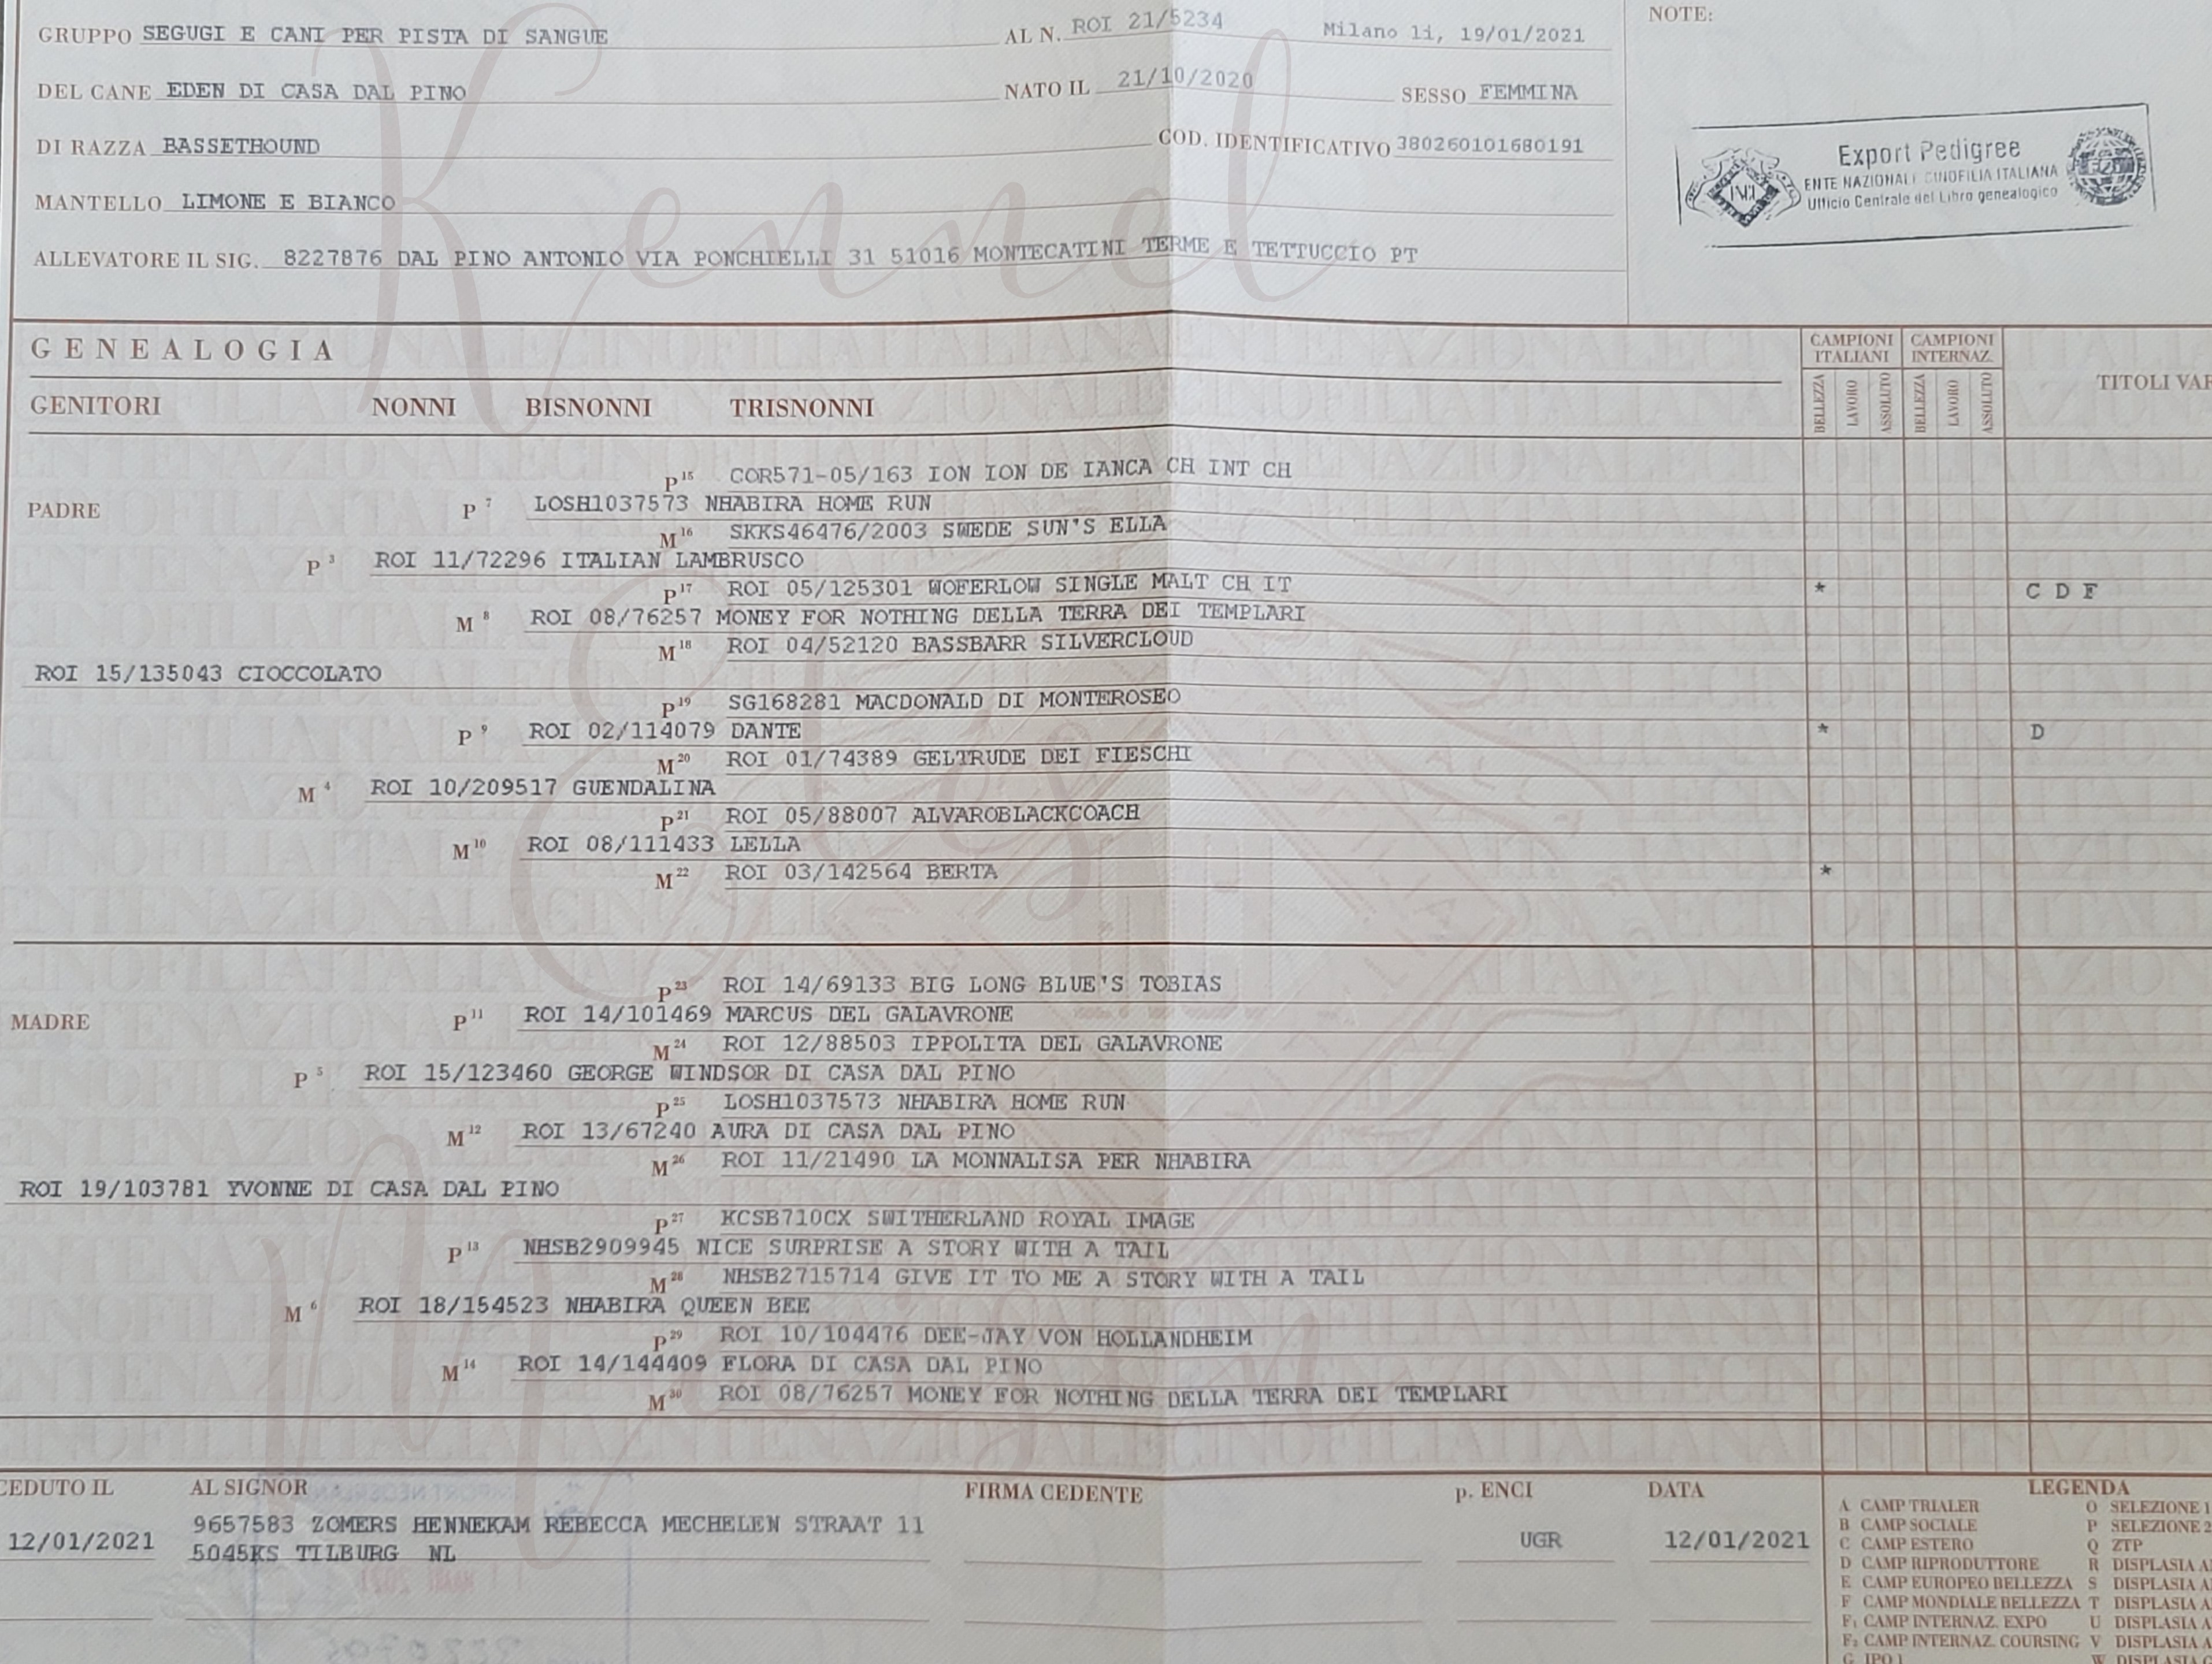 GRUPPO SEGUGI E CANI PER PISTA DI SANGUE AL N. ROI 21/5234 Milano li, 19/01/2021
NOTE:
DEL CANE EDEN DI CASA DAL PINO NATO IL 21/10/2020 SESSO FEMMINA
DI RAZZA BASSETHOUND COD. IDENTIFICATIVO 380260101680191
MANTELLO LIMONE E BIANCO
ALLEVATORE IL SIG. 8227876 DAL PINO ANTONIO VIA PONCHIELLI 31 51016 MONTECATINI TERME E TETTUCCIO PT
Export Pedigree
ENTE NAZIONALE CINOFILIA ITALIANA
Ufficio Centrale del Libro genealogico
Kennel
GENEALOGIA
CAMPIONI ITALIANI CAMPIONI INTERNAZ.
BELLEZZA LAVORO ASSOLUTO BELLEZZA LAVORO ASSOLUTO TITOLI VAR
GENITORI NONNI BISNONNI TRISNONNI
P 15 COR571-05/163 ION ION DE IANCA CH INT CH
PADRE P 7 LOSH1037573 NHABIRA HOME RUN
M 16 SKKS46476/2003 SWEDE SUN'S ELLA
P 3 ROI 11/72296 ITALIAN LAMBRUSCO
P 17 ROI 05/125301 WOFERLOW SINGLE MALT CH IT * C D F
M 8 ROI 08/76257 MONEY FOR NOTHING DELLA TERRA DEI TEMPLARI
M 18 ROI 04/52120 BASSBARR SILVERCLOUD
ROI 15/135043 CIOCCOLATO
P 19 SG168281 MACDONALD DI MONTEROSEO
P 9 ROI 02/114079 DANTE * D
M 20 ROI 01/74389 GELTRUDE DEI FIESCHI
M 4 ROI 10/209517 GUENDALINA
P 21 ROI 05/88007 ALVAROBLACKCOACH
M 10 ROI 08/111433 LELLA
M 22 ROI 03/142564 BERTA *
P 23 ROI 14/69133 BIG LONG BLUE'S TOBIAS
MADRE P 11 ROI 14/101469 MARCUS DEL GALAVRONE
M 24 ROI 12/88503 IPPOLITA DEL GALAVRONE
P 5 ROI 15/123460 GEORGE WINDSOR DI CASA DAL PINO
P 25 LOSH1037573 NHABIRA HOME RUN
M 12 ROI 13/67240 AURA DI CASA DAL PINO
M 26 ROI 11/21490 LA MONNALISA PER NHABIRA
ROI 19/103781 YVONNE DI CASA DAL PINO
P 27 KCSB710CX SWITHERLAND ROYAL IMAGE
P 13 NHSB2909945 NICE SURPRISE A STORY WITH A TAIL
M 28 NHSB2715714 GIVE IT TO ME A STORY WITH A TAIL
M 6 ROI 18/154523 NHABIRA QUEEN BEE
P 29 ROI 10/104476 DEE-JAY VON HOLLANDHEIM
M 14 ROI 14/144409 FLORA DI CASA DAL PINO
M 30 ROI 08/76257 MONEY FOR NOTHING DELLA TERRA DEI TEMPLARI
CEDUTO IL AL SIGNOR FIRMA CEDENTE p. ENCI DATA
12/01/2021 9657583 ZOMERS HENNEKAM REBECCA MECHELEN STRAAT 11 UGR 12/01/2021
5045KS TILBURG NL
LEGENDA
A CAMP TRIALER O SELEZIONE 1
B CAMP SOCIALE P SELEZIONE 2
C CAMP ESTERO Q ZTP
D CAMP RIPRODUTTORE R DISPLASIA A
E CAMP EUROPEO BELLEZZA S DISPLASIA A
F CAMP MONDIALE BELLEZZA T DISPLASIA A
F1 CAMP INTERNAZ. EXPO U DISPLASIA A
F2 CAMP INTERNAZ. COURSING V DISPLASIA A
G IPO 1 W DISPLASIA